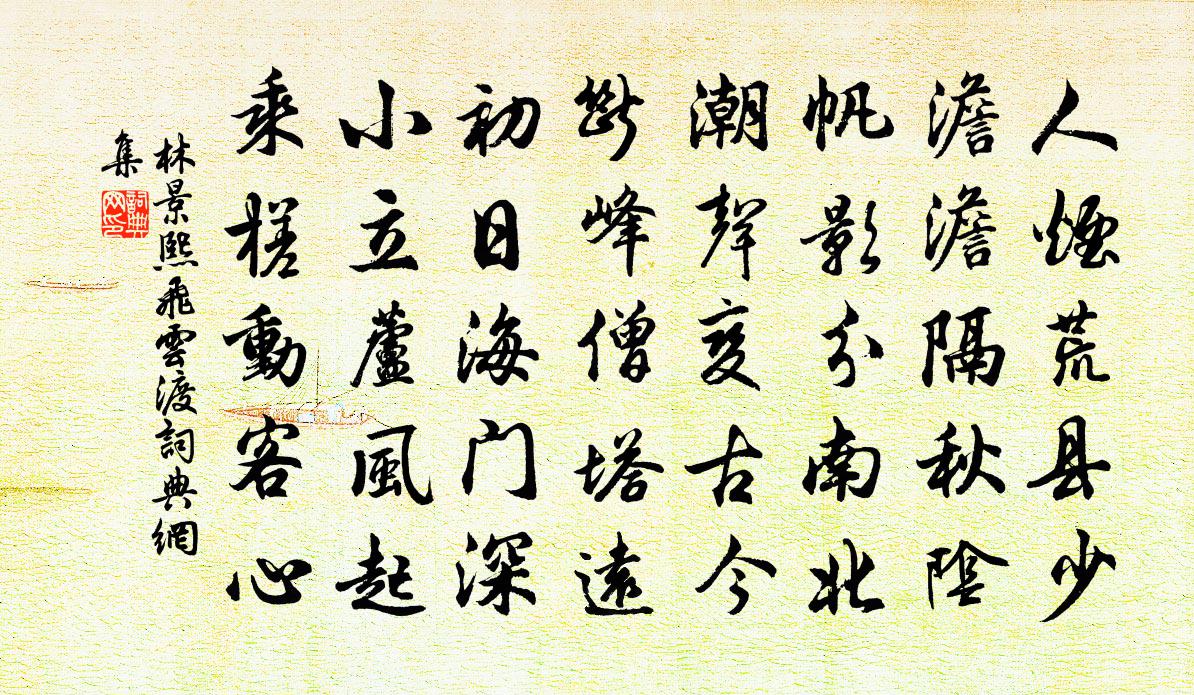 人煙荒县少
澹澹隔秋陰
帆影分南北
潮聲变古今
断峰僧塔遠
初日海门深
小立蘆風起
乘槎動客心
林景熙飛雲渡詞典網
集
詞典网印